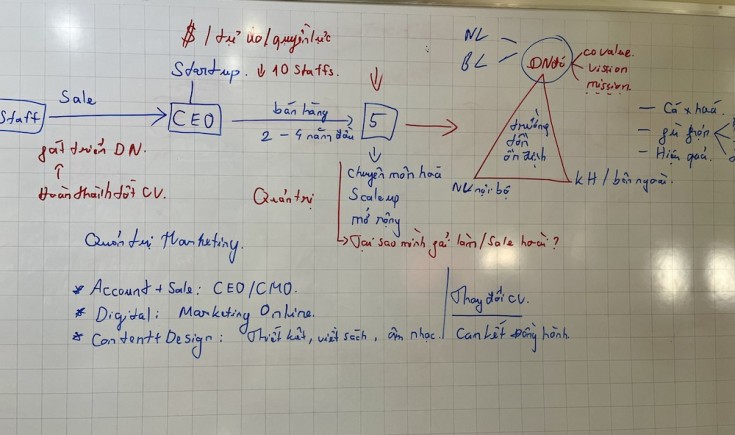 $ / tự do / quyền lực
Startup. ↓ 10 Staffs.
Staff
Sale
CEO
bán hàng
2 - 4 năm đầu
5
phát triển DN.
↑
Hoàn thành tốt CV.
Quản trị
chuyên môn hoá
Scaleup
mở rộng
Tại sao mình phải làm / Sale hoài ?
NL
BL
DN
covalue.
vission
mission.
trưởng
tồn
ổn định
NV nội bộ
KH / bên ngoài.
— Cá x hoá.
— gử gón
— Hiệu quả.
Quản trị Marketing.
* Account + Sale : CEO / CMO.
* Digital : Marketing Online.
* Content + Design : Thiết kế, viết sách, âm nhạc.
Thay đổi CV.
Cam kết đồng hành.